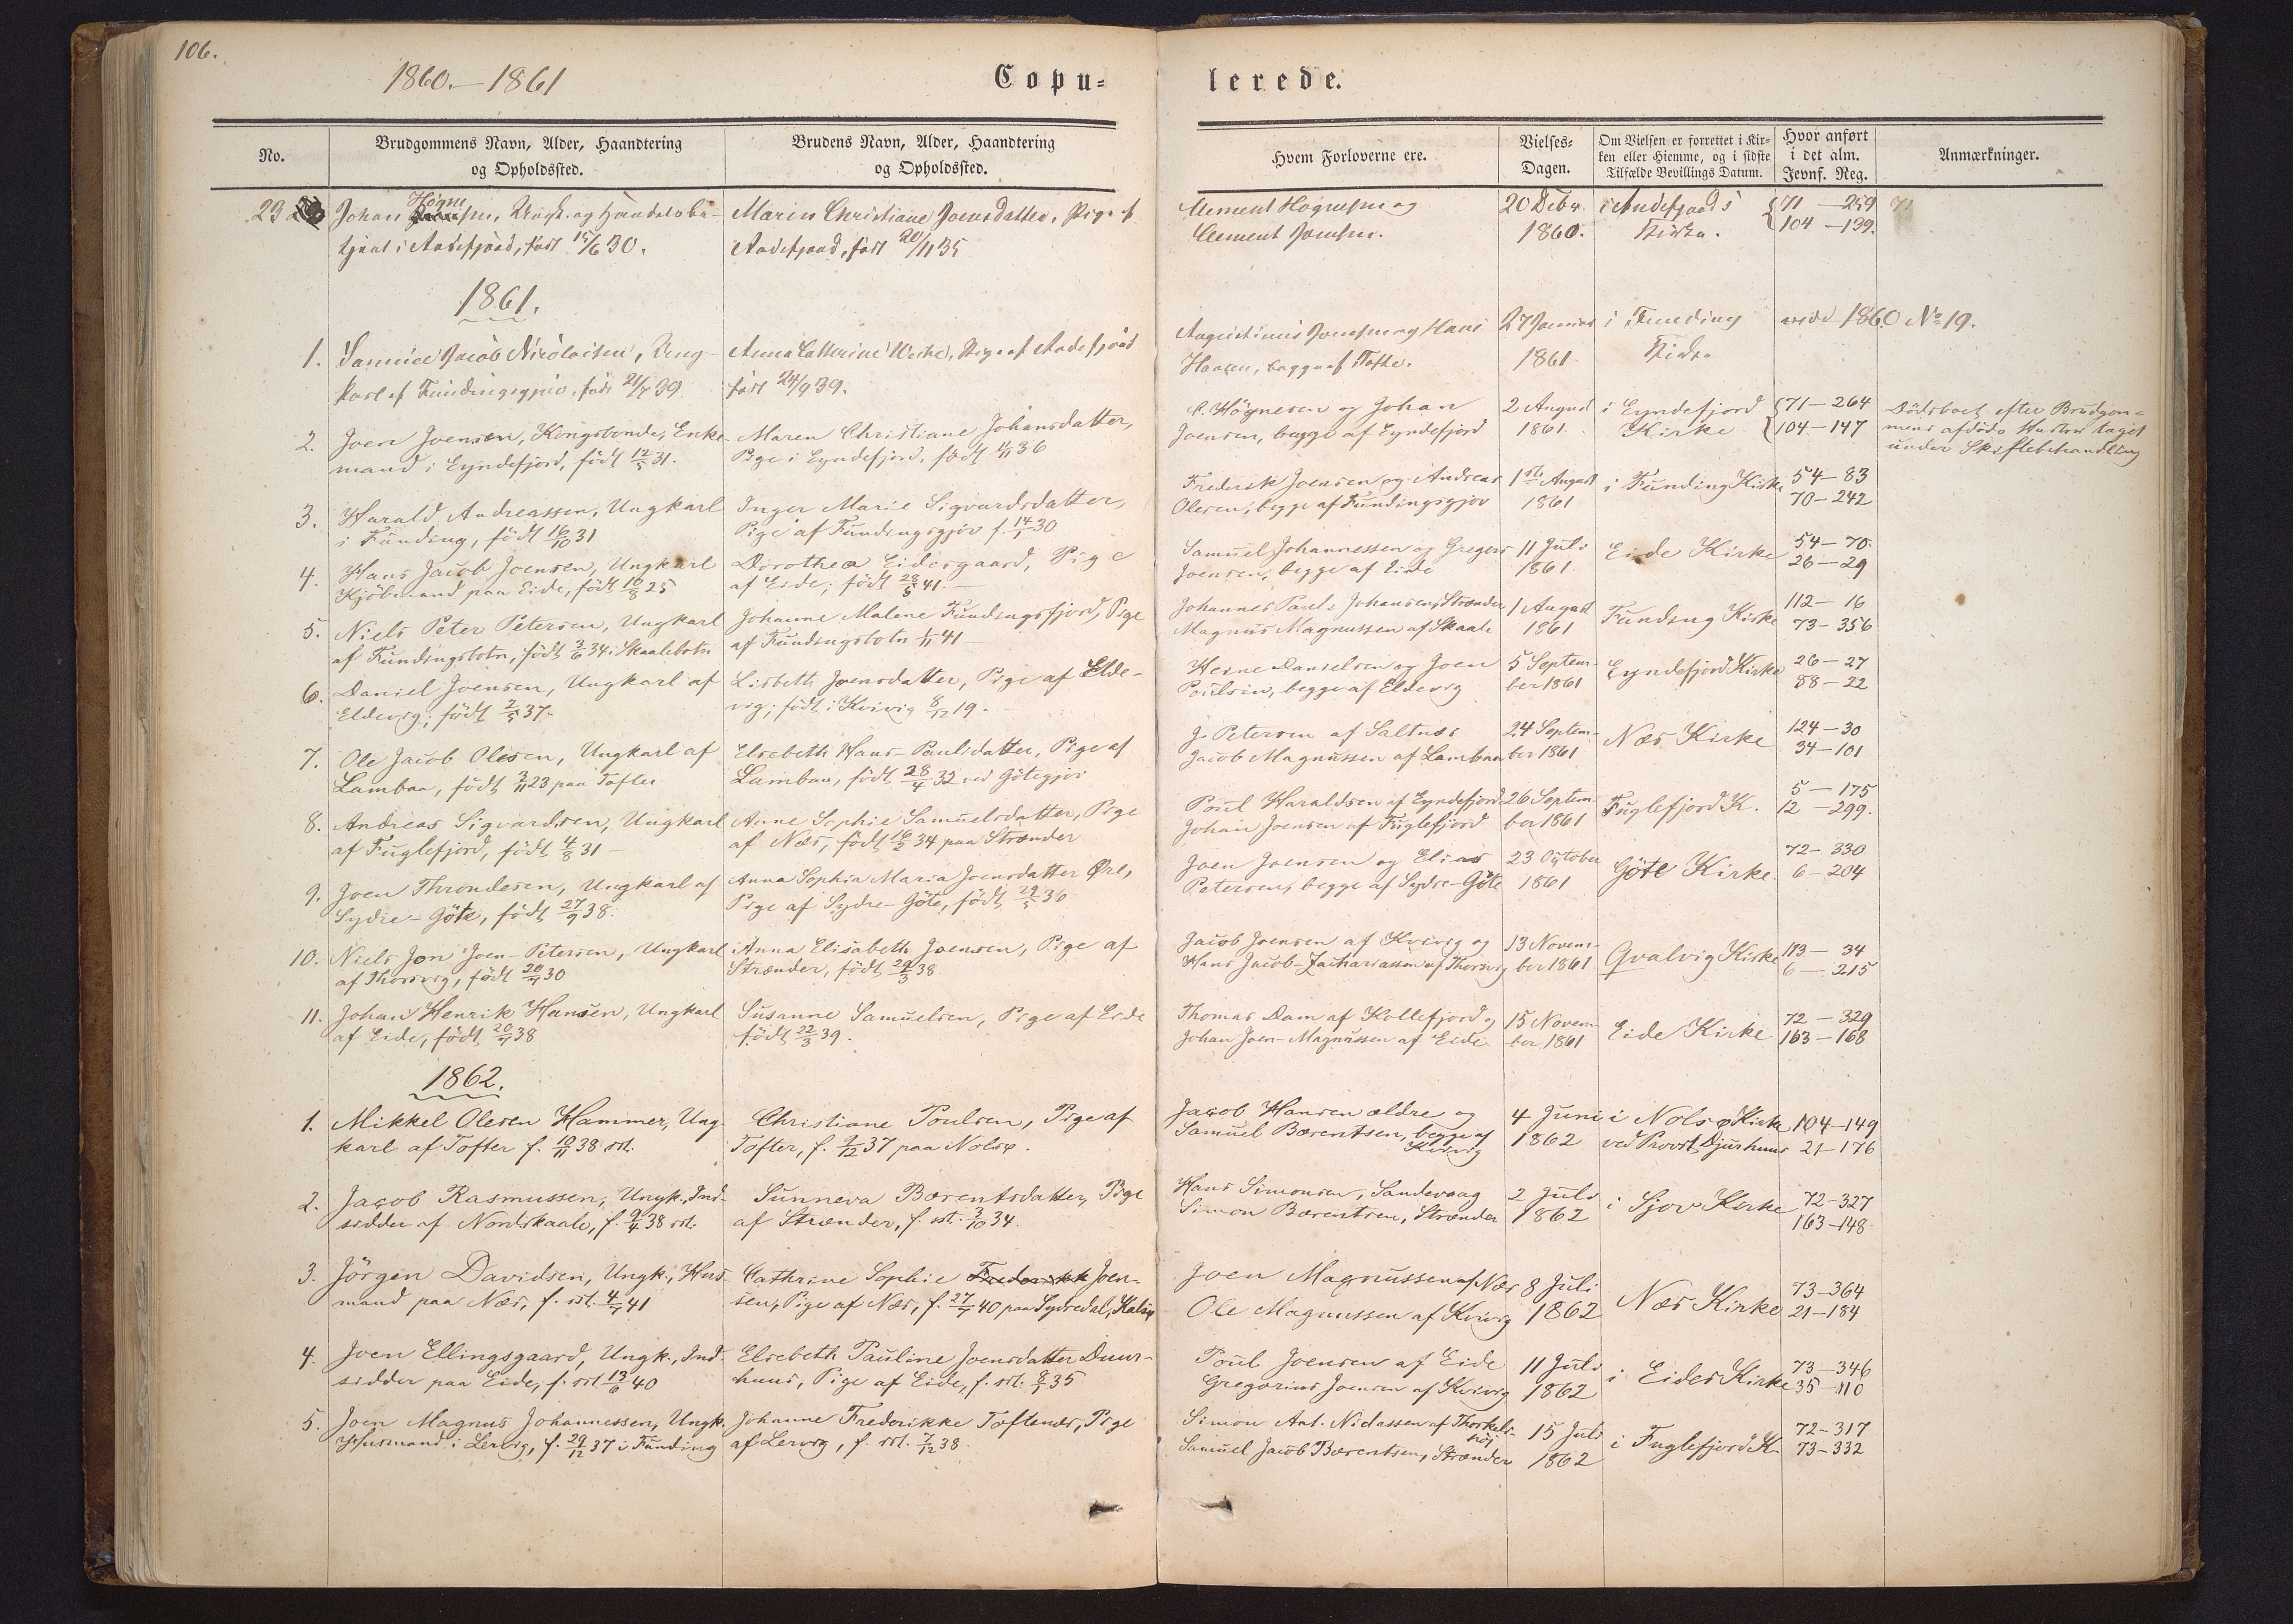 106.
1860.–1861
Copu=
lerede.
No.
Brudgommens Navn, Alder, Haandtering
og Opholdssted.
Brudens Navn, Alder, Haandtering
og Opholdssted.
Hvem Forloverne ere.
Vielses=
Dagen.
Om Vielsen er forrettet i Kir-
ken eller Hiemme, og i sidste
Tilfælde Bevillings Datum.
Hvor anført
i det alm.
Jevnf. Reg.
Anmærkninger.
23
Johan Høgne
født 15/6 30.
Maren Christiane Joensdatter, Pige
født 20/11 35
Clement Høgnesen og
Clement Joensen.
20 Decbr.
1860.
Kirke.
71 – 259
104 – 139.
71
1861.
1. Jacob Nicolaisen, Ung-
karl af Fundingsgjov, født 21/7 39
Anna Cathrine Pige af
født 24/9 39.
Augustinus Joensen og Hans
begge af Tofte.
27 Januar
1861
i Funding
Kirke
1860 No 19.
2. Joen Joensen, Kongsbonde, Enke-
mand i Eyndefjord, födt 12/5 31.
Maren Christiane Johansdatter,
Pige i Eyndefjord, födt 4/11 36
C. Högnesen og Johan
Joensen, begge af Eyndefjord
2 August
1861.
i Eyndefjord
Kirke
71 – 264
104 – 147
Dödsboet efter Brudgom-
mens afdöde Hustru taget
under Skiftebehandling
3. Harald Andreassen, Ungkarl
i Funding, födt 16/10 31
Inger Marie Sigvardsdatter,
Pige af Fundingsgjov f. 14/1 30
Frederik Joensen og Andreas
Olesen, begge af Fundingsgjov
1ste August
1861
i Funding Kirke
54 – 83
70 – 242
4. Hans Jacob Joensen, Ungkarl
Kjöbmand paa Eide, födt 10/8 25
Dorothea Eidesgaard, Pige
af Eide; födt 28/5 41.
Samuel Johannessen og Gregers
Joensen, begge af Eide
11 Juli
1861.
Eide Kirke
54 – 70.
26 – 29
5. Niels Peter Petersen, Ungkarl
af Fundingsbotn, födt 3/6 34 i Skaalebotn
Johanne Malene Fundingsfjord, Pige
af Fundingsbotn 1/11 41
Johannes Pauls Johansen, Strænder
Magnus Magnussen af Skaale
1 August
1861
Funding Kirke
112 – 16
73 – 356
6. Daniel Joensen, Ungkarl af
Eldevig; födt 2/5 37.
Lisbeth Joensdatter, Pige af Elde-
vig; födt i Kvivig 8/12 19.
Heine Danielsen og Joen
Poulsen, begge af Eldevig
5 Septem-
ber 1861
Eyndefjord Kirke
26 – 27
88 – 22
7. Ole Jacob Olesen, Ungkarl af
Lambaa, födt 3/11 23 paa Tofter
Elsebeth Hans-Paulsdatter, Pige af
Lambaa, födt 28/4 32 ved Götegjov
J. Petersen af Saltnæs
Jacob Magnussen af Lambaa
24 Septem-
ber 1861
Næs Kirke
124 – 30
34 – 101
8. Andreas Sigvardsen, Ungkarl
af Fuglefjord, födt 4/8 31
Anne Sophie Samuelsdatter, Pige
af Næs, födt 16/2 34 paa Strænder
Poul Haraldsen af Eyndefjord
Johan Joensen af Fuglefjord
26 Septem-
ber 1861
Fuglefjord K.
5 – 175
12 – 299.
9. Joen Throndesen, Ungkarl af
Sydre-Göte, födt 27/9 38.
Anna Sophia Maria Joensdatter Øre,
Pige af Sydre-Göte, födt 29/5 36
Joen Joensen og Elias
Petersen, begge af Sydre-Göte
23 October
1861
Göte Kirke.
72 – 330
6 – 204
10. Niels Jon Joen-Petersen, Ungkarl
af Thorsvig, födt 20/7 30
Anna Elisabeth Joensen, Pige af
Strænder, födt 29/3 38
Jacob Joensen af Kvivig og
Hans Jacob-Zachariassen af Thorsvig
13 Novem-
ber 1861
Qvalvig Kirke
113 – 34
6 – 215
11. Johan Henrik Hansen, Ungkarl
af Eide, födt 20/7 38
Susanne Samuelsen, Pige af Eide
födt 22/3 39.
Thomas Dam af Kollefjord og
Johan Joen-Magnussen af Eide
15 Novem-
ber 1861
Eide Kirke
72 – 329
163 – 168
1862.
1. Mikkel Olesen Hammer, Ung-
karl af Tofter f. 10/11 38 sst.
Christiane Poulsen, Pige af
Tofter, f. 9/12 37 paa Nolsø.
Jacob Hansen ældre og
Samuel Bærentsen, begge af
Kvivig
4 Juni
1862
i Nolsø Kirke
ved Provst Djurhuus
104–149
21–176
2. Jacob Rasmussen, Ungk., Ind-
sidder af Nordskaale, f. 9/4 38 sst.
Sunneva Bærentsdatter, Pige
af Strænder, f. sst. 3/10 34.
Hans Simonsen, Sandevaag
Simon Bærentsen, Strænder
2 Juli
1862
i Sjov Kirke
72–327
163–148
3. Jörgen Davidsen, Ungk., Hus-
mand paa Næs, f. sst. 4/7 41
Cathrine Sophie Frederikke Joen-
sen, Pige af Næs, f. 27/7 40 paa Sydredal, Kalsø
Joen Magnussen af Næs
Ole Magnussen af Kvivig
8 Juli
1862
Næs Kirke
73–364
21–184
4. Joen Ellingsgaard, Ungk., Ind-
sidder paa Eide, f. sst. 13/6 40
Elsebeth Pauline Joensdatter Duur-
huus, Pige af Eide, f. sst. 8/7 35
Poul Joensen af Eide
Gregorius Joensen af Kvivig
11 Juli
1862
i Eides Kirke
73–346
35–110
5. Joen Magnus Johannessen, Ungk.
Husmand i Lervig, f. 29/12 37 i Funding
Johanne Frederikke Toftenæs, Pige
af Lervig, f. sst. 7/12 38.
Simon Ant. Niclassen af Thorkels-
höj
Samuel Jacob Bærentsen, Strænder
15 Juli
1862
i Fuglefjord K.
72–317
73–332